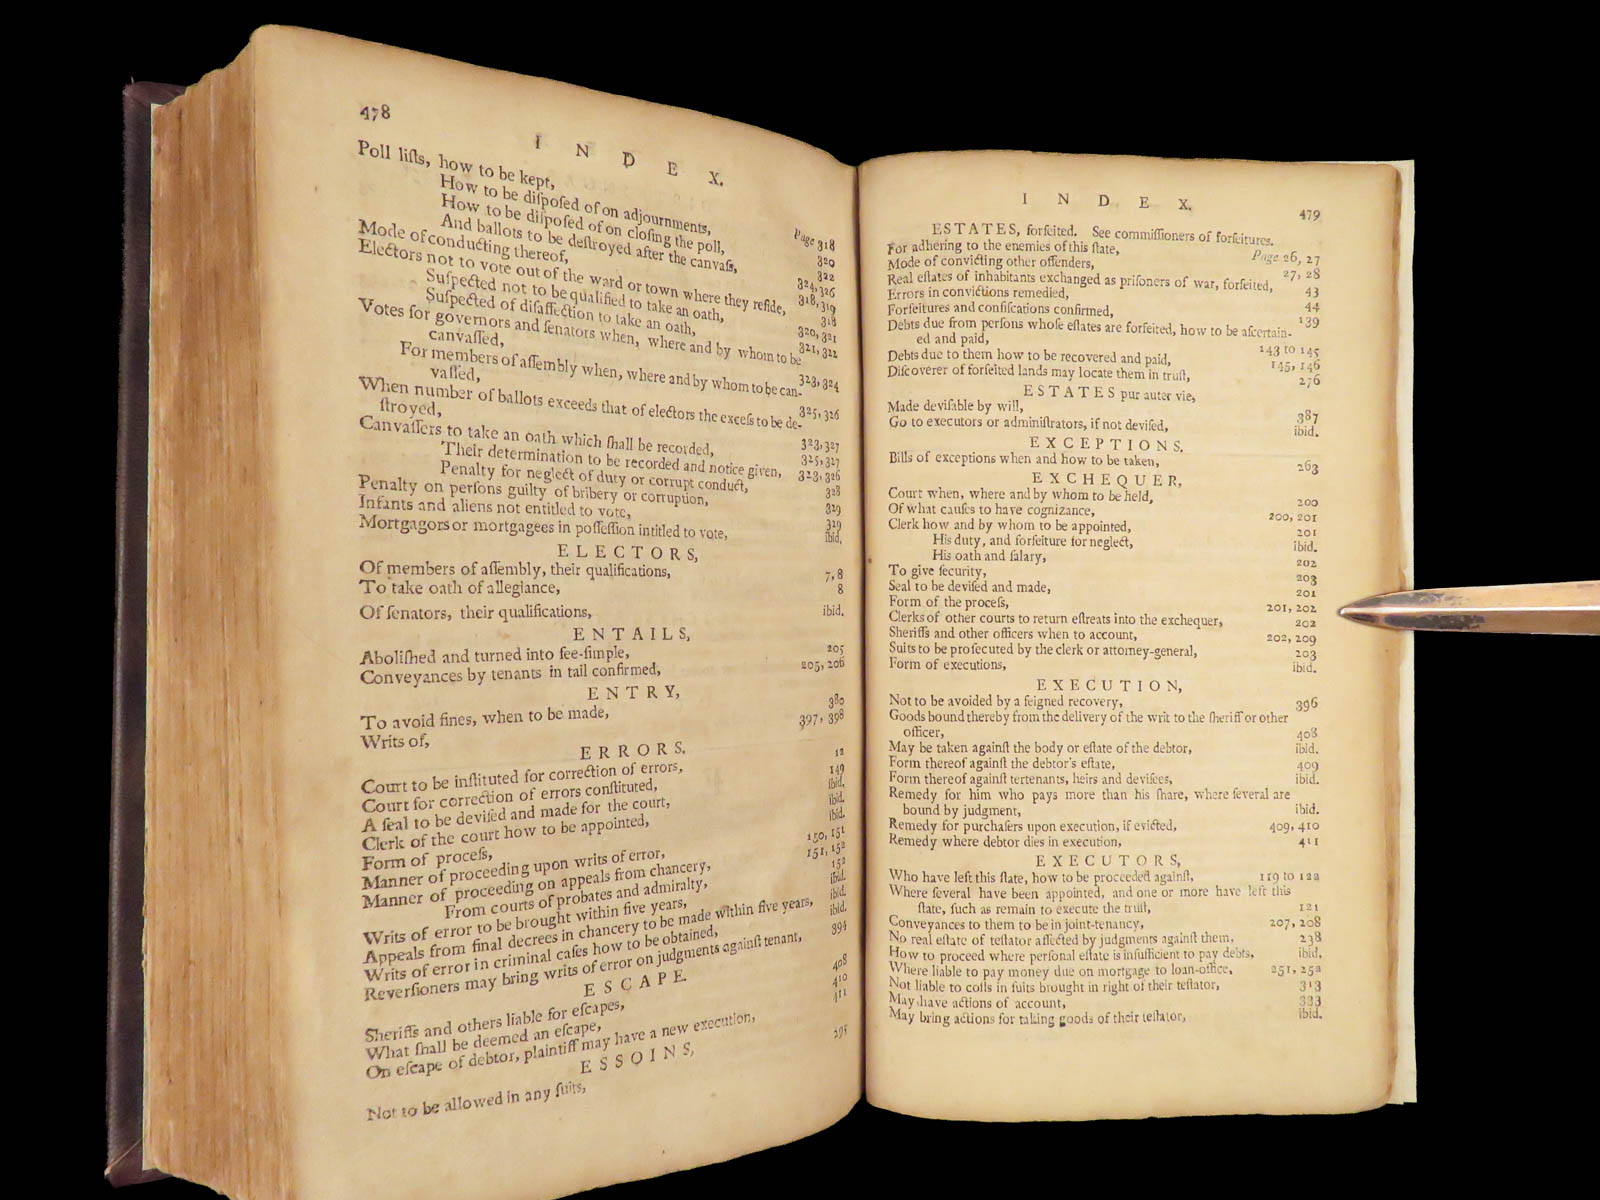 478
INDEX.
Poll liſts, how to be kept, Page 318
How to be diſpoſed of on adjournments, 320
How to be diſpoſed of on cloſing the poll, 322
And ballots to be deſtroyed after the canvaſs, 324, 326
Mode of conducting thereof, 318, 319
Electors not to vote out of the ward or town where they reſide, 318
Suſpected not to be qualified to take an oath, 320, 321
Suſpected of diſaffection to take an oath, 321, 322
Votes for governors and ſenators when, where and by whom to be
canvaſſed, 323, 324
For members of aſſembly when, where and by whom to be can-
vaſſed, 325, 326
When number of ballots exceeds that of electors the exceſs to be de-
ſtroyed, 323, 327
Canvaſſers to take an oath which ſhall be recorded, 325, 327
Their determination to be recorded and notice given, 323, 326
Penalty for neglect of duty or corrupt conduct, 328
Penalty on perſons guilty of bribery or corruption, 329
Infants and aliens not entitled to vote, 329
Mortgagors or mortgagees in poſſeſſion intitled to vote, ibid.
ELECTORS,
Of members of aſſembly, their qualifications, 7, 8
To take oath of allegiance, 8
Of ſenators, their qualifications, ibid.
ENTAILS,
Aboliſhed and turned into fee-ſimple, 205
Conveyances by tenants in tail confirmed, 205, 206
ENTRY,
To avoid fines, when to be made, 380
Writs of, 397, 398
ERRORS.
Court to be inſtituted for correction of errors, 12
Court for correction of errors conſtituted, 149
A ſeal to be deviſed and made for the court, ibid.
Clerk of the court how to be appointed, ibid.
Form of proceſs, ibid.
Manner of proceeding upon writs of error, 150, 151
Manner of proceeding on appeals from chancery, 151, 152
From courts of probates and admiralty, 152
Writs of error to be brought within five years, ibid.
Appeals from final decrees in chancery to be made within five years, ibid.
Writs of error in criminal caſes how to be obtained, ibid.
Reverſioners may bring writs of error on judgments againſt tenant, 394
ESCAPE.
Sheriffs and others liable for eſcapes, 408
What ſhall be deemed an eſcape, 410
On eſcape of debtor, plaintiff may have a new execution, 411
ESSOINS,
Not to be allowed in any ſuits, 295
INDEX. 479
ESTATES, forfeited. See commiſſioners of forfeitures.
For adhering to the enemies of this ſtate, Page 26, 27
Mode of convicting other offenders, 27, 28
Real eſtates of inhabitants exchanged as priſoners of war, forfeited, 43
Errors in convictions remedied, 44
Forfeitures and confiſcations confirmed, 139
Debts due from perſons whoſe eſtates are forfeited, how to be aſcertain-
ed and paid, 143 to 145
Debts due to them how to be recovered and paid, 145, 146
Diſcoverer of forfeited lands may locate them in truſt, 276
ESTATES pur auter vie,
Made deviſable by will, 387
Go to executors or adminiſtrators, if not deviſed, ibid.
EXCEPTIONS.
Bills of exceptions when and how to be taken, 263
EXCHEQUER,
Court when, where and by whom to be held, 200
Of what cauſes to have cognizance, 200, 201
Clerk how and by whom to be appointed, 201
His duty, and forfeiture for neglect, ibid.
His oath and ſalary, 202
To give ſecurity, 203
Seal to be deviſed and made, 201
Form of the proceſs, 201, 202
Clerks of other courts to return eſtreats into the exchequer, 202
Sheriffs and other officers when to account, 202, 209
Suits to be proſecuted by the clerk or attorney-general, 203
Form of executions, ibid.
EXECUTION,
Not to be avoided by a feigned recovery, 396
Goods bound thereby from the delivery of the writ to the ſheriff or other
officer, 408
May be taken againſt the body or eſtate of the debtor, ibid.
Form thereof againſt the debtor's eſtate, 409
Form thereof againſt tertenants, heirs and deviſees, ibid.
Remedy for him who pays more than his ſhare, where ſeveral are
bound by judgment, ibid.
Remedy for purchaſers upon execution, if evicted, 409, 410
Remedy where debtor dies in execution, 411
EXECUTORS,
Who have left this ſtate, how to be proceeded againſt, 119 to 122
Where ſeveral have been appointed, and one or more have left this
ſtate, ſuch as remain to execute the truſt, 121
Conveyances to them to be in joint-tenancy, 207, 208
No real eſtate of teſtator affected by judgments againſt them, 238
How to proceed where perſonal eſtate is inſufficient to pay debts, ibid.
Where liable to pay money due on mortgage to loan-office, 251, 252
Not liable to coſts in ſuits brought in right of their teſtator, 313
May have actions of account, 333
May bring actions for taking goods of their teſtator, ibid.